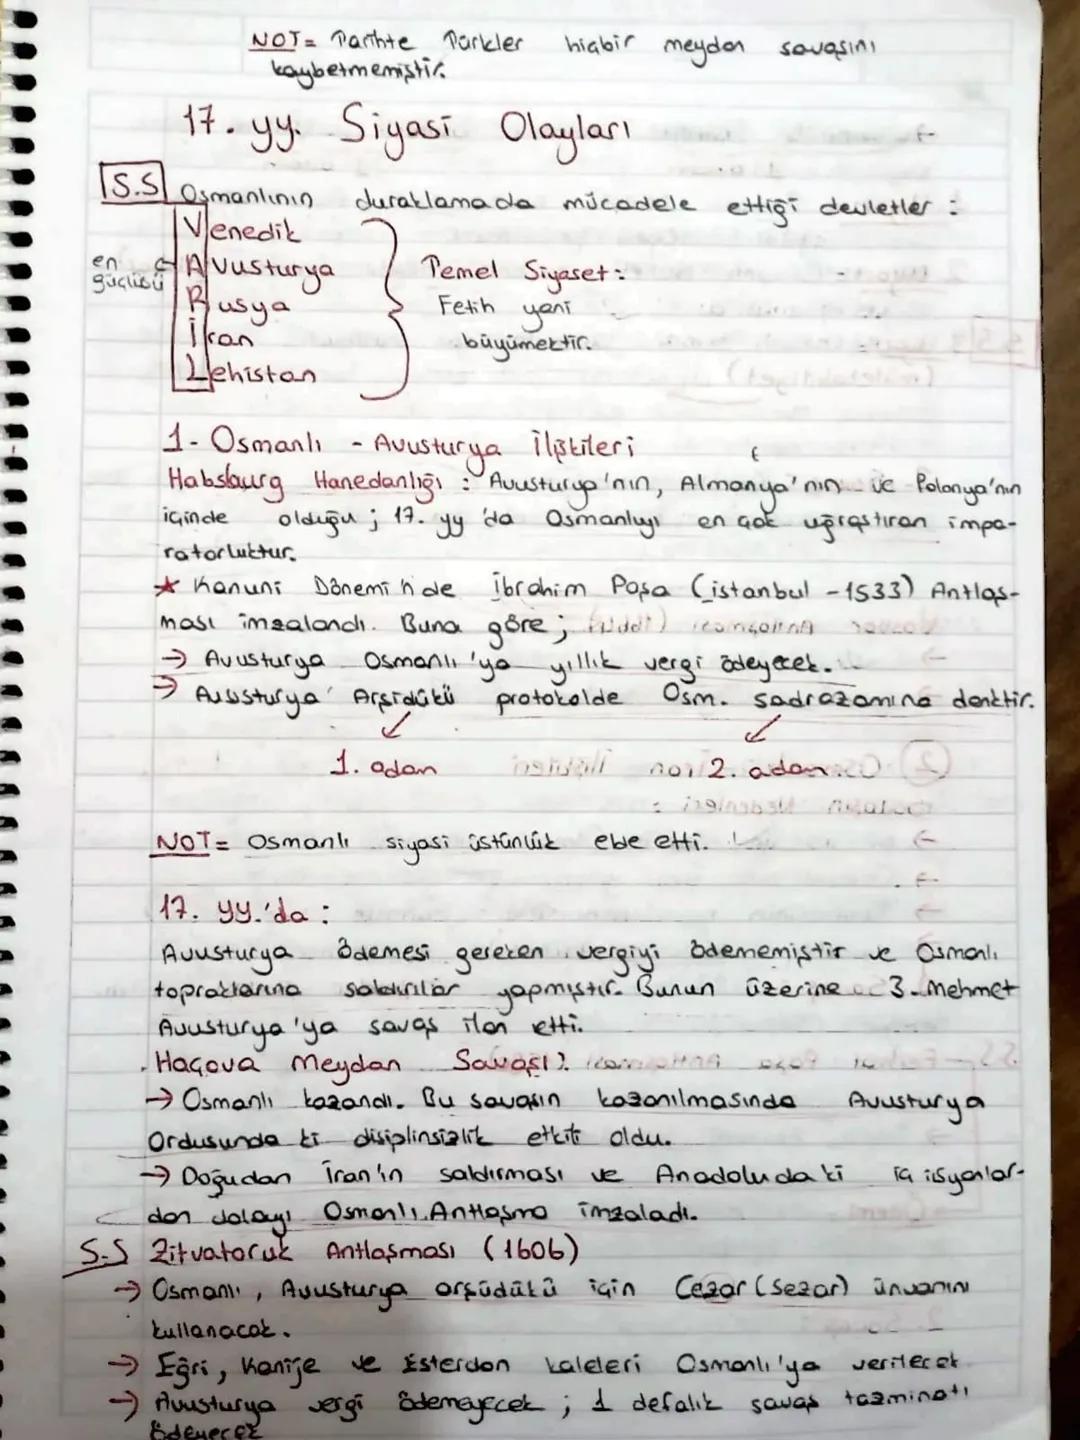 NOT= Tarihte Türkler hiçbir meydan savaşını
kaybetmemiştir.
17. yy. Siyasi Olayları
S.S Osmanlının duraklamada mücadele ettiği devletler :
Venedik
en güçlüsü
Avusturya
Rusya
İran
Lehistan
Temel Siyaset:
Fetih yani
büyümektir.
1- Osmanlı - Avusturya İlişkileri
Habsburg Hanedanlığı : Avusturya'nın, Almanya'nın ve Polonya'nın
içinde olduğu ; 17. yy 'da Osmanlıyı en çok uğraştıran impa-
ratorluktur.
★ Kanuni Dönemi'nde İbrahim Paşa (istanbul - 1533) Antlaş-
ması imzalandı. Buna göre;
→ Avusturya Osmanlı'ya yıllık vergi ödeyecek.
→ Avusturya Arşidükü protokolde Osm. sadrazamına denktir.
1. adam 2. adam
NOT= Osmanlı siyasi üstünlük elde etti.
17. yy.'da :
Avusturya ödemesi gereken vergiyi ödememiştir ve Osmanlı
topraklarına saldırılar yapmıştır. Bunun üzerine 3. Mehmet
Avusturya'ya savaş ilan etti.
Haçova Meydan Savaşı:
→ Osmanlı kazandı. Bu savaşın kazanılmasında Avusturya
Ordusunda ki disiplinsizlik etkili oldu.
→ Doğudan İran'ın saldırması ve Anadoludaki iç isyanlar-
dan dolayı Osmanlı Antlaşma imzaladı.
S.S Zitvatoruk Antlaşması (1606)
→ Osmanlı, Avusturya arşüdükü için Cezar (Sezar) ünvanını
kullanacak.
→ Eğri, Kanije ve Esterdon kaleleri Osmanlı'ya verilecek
→ Avusturya vergi ödemeyecek ; 1 defalık savaş tazminatı
ödeyecek